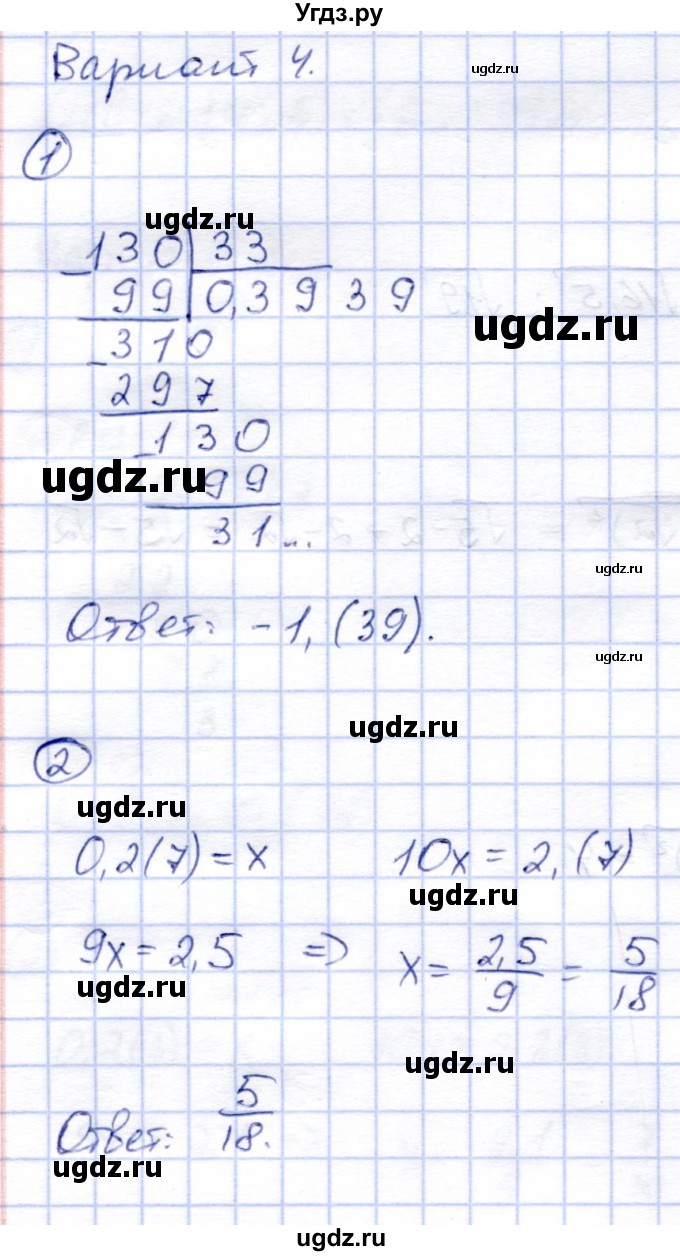 Угдз.ру
Вариант 4.
ugdz.ru
1
ugdz.ru
-130 | 33
99 | 0,3939
ugdz.ru
-310
297
-130
ugdz.ru
99
31...
ugdz.ru
Ответ: -1,(39).
ugdz.ru
ugdz.ru
2
ugdz.ru
0,2(7)=x 10x=2,(7)
ugdz.ru
9x=2,5 => x= 2,5/9 = 5/18
ugdz.ru
ugdz.ru
Ответ: 5/18.
ugdz.ru
ugdz.ru